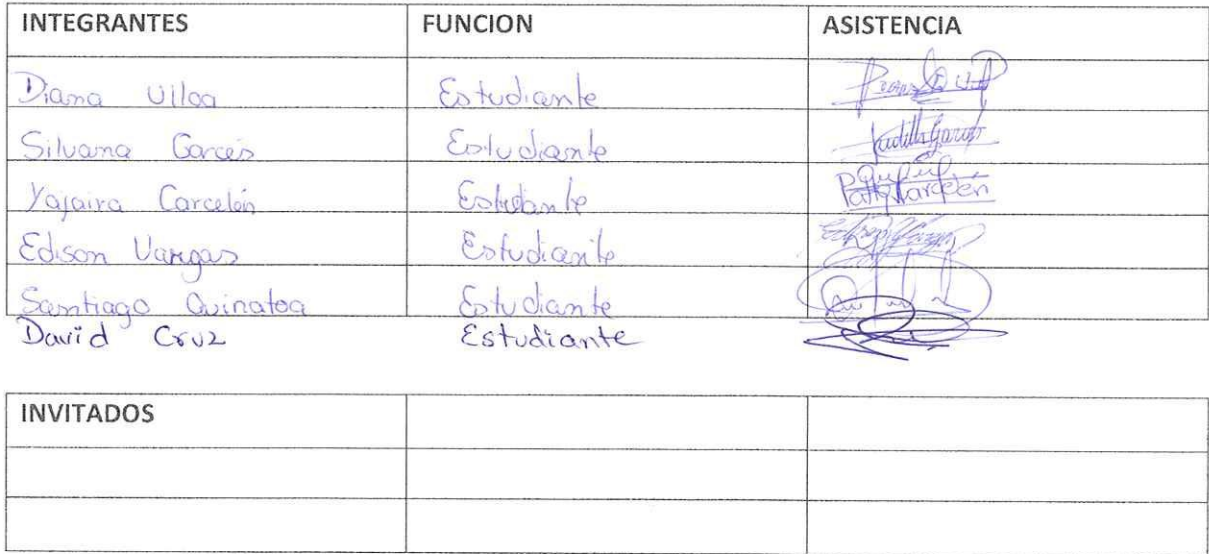 INTEGRANTES FUNCION ASISTENCIA
Diana Ulloa Estudiante
Silvana Garcés Estudiante
Yajaira Carcelén Estudiante
Edison Vargas Estudiante
Santiago Quinatoa Estudiante
David Cruz Estudiante
INVITADOS